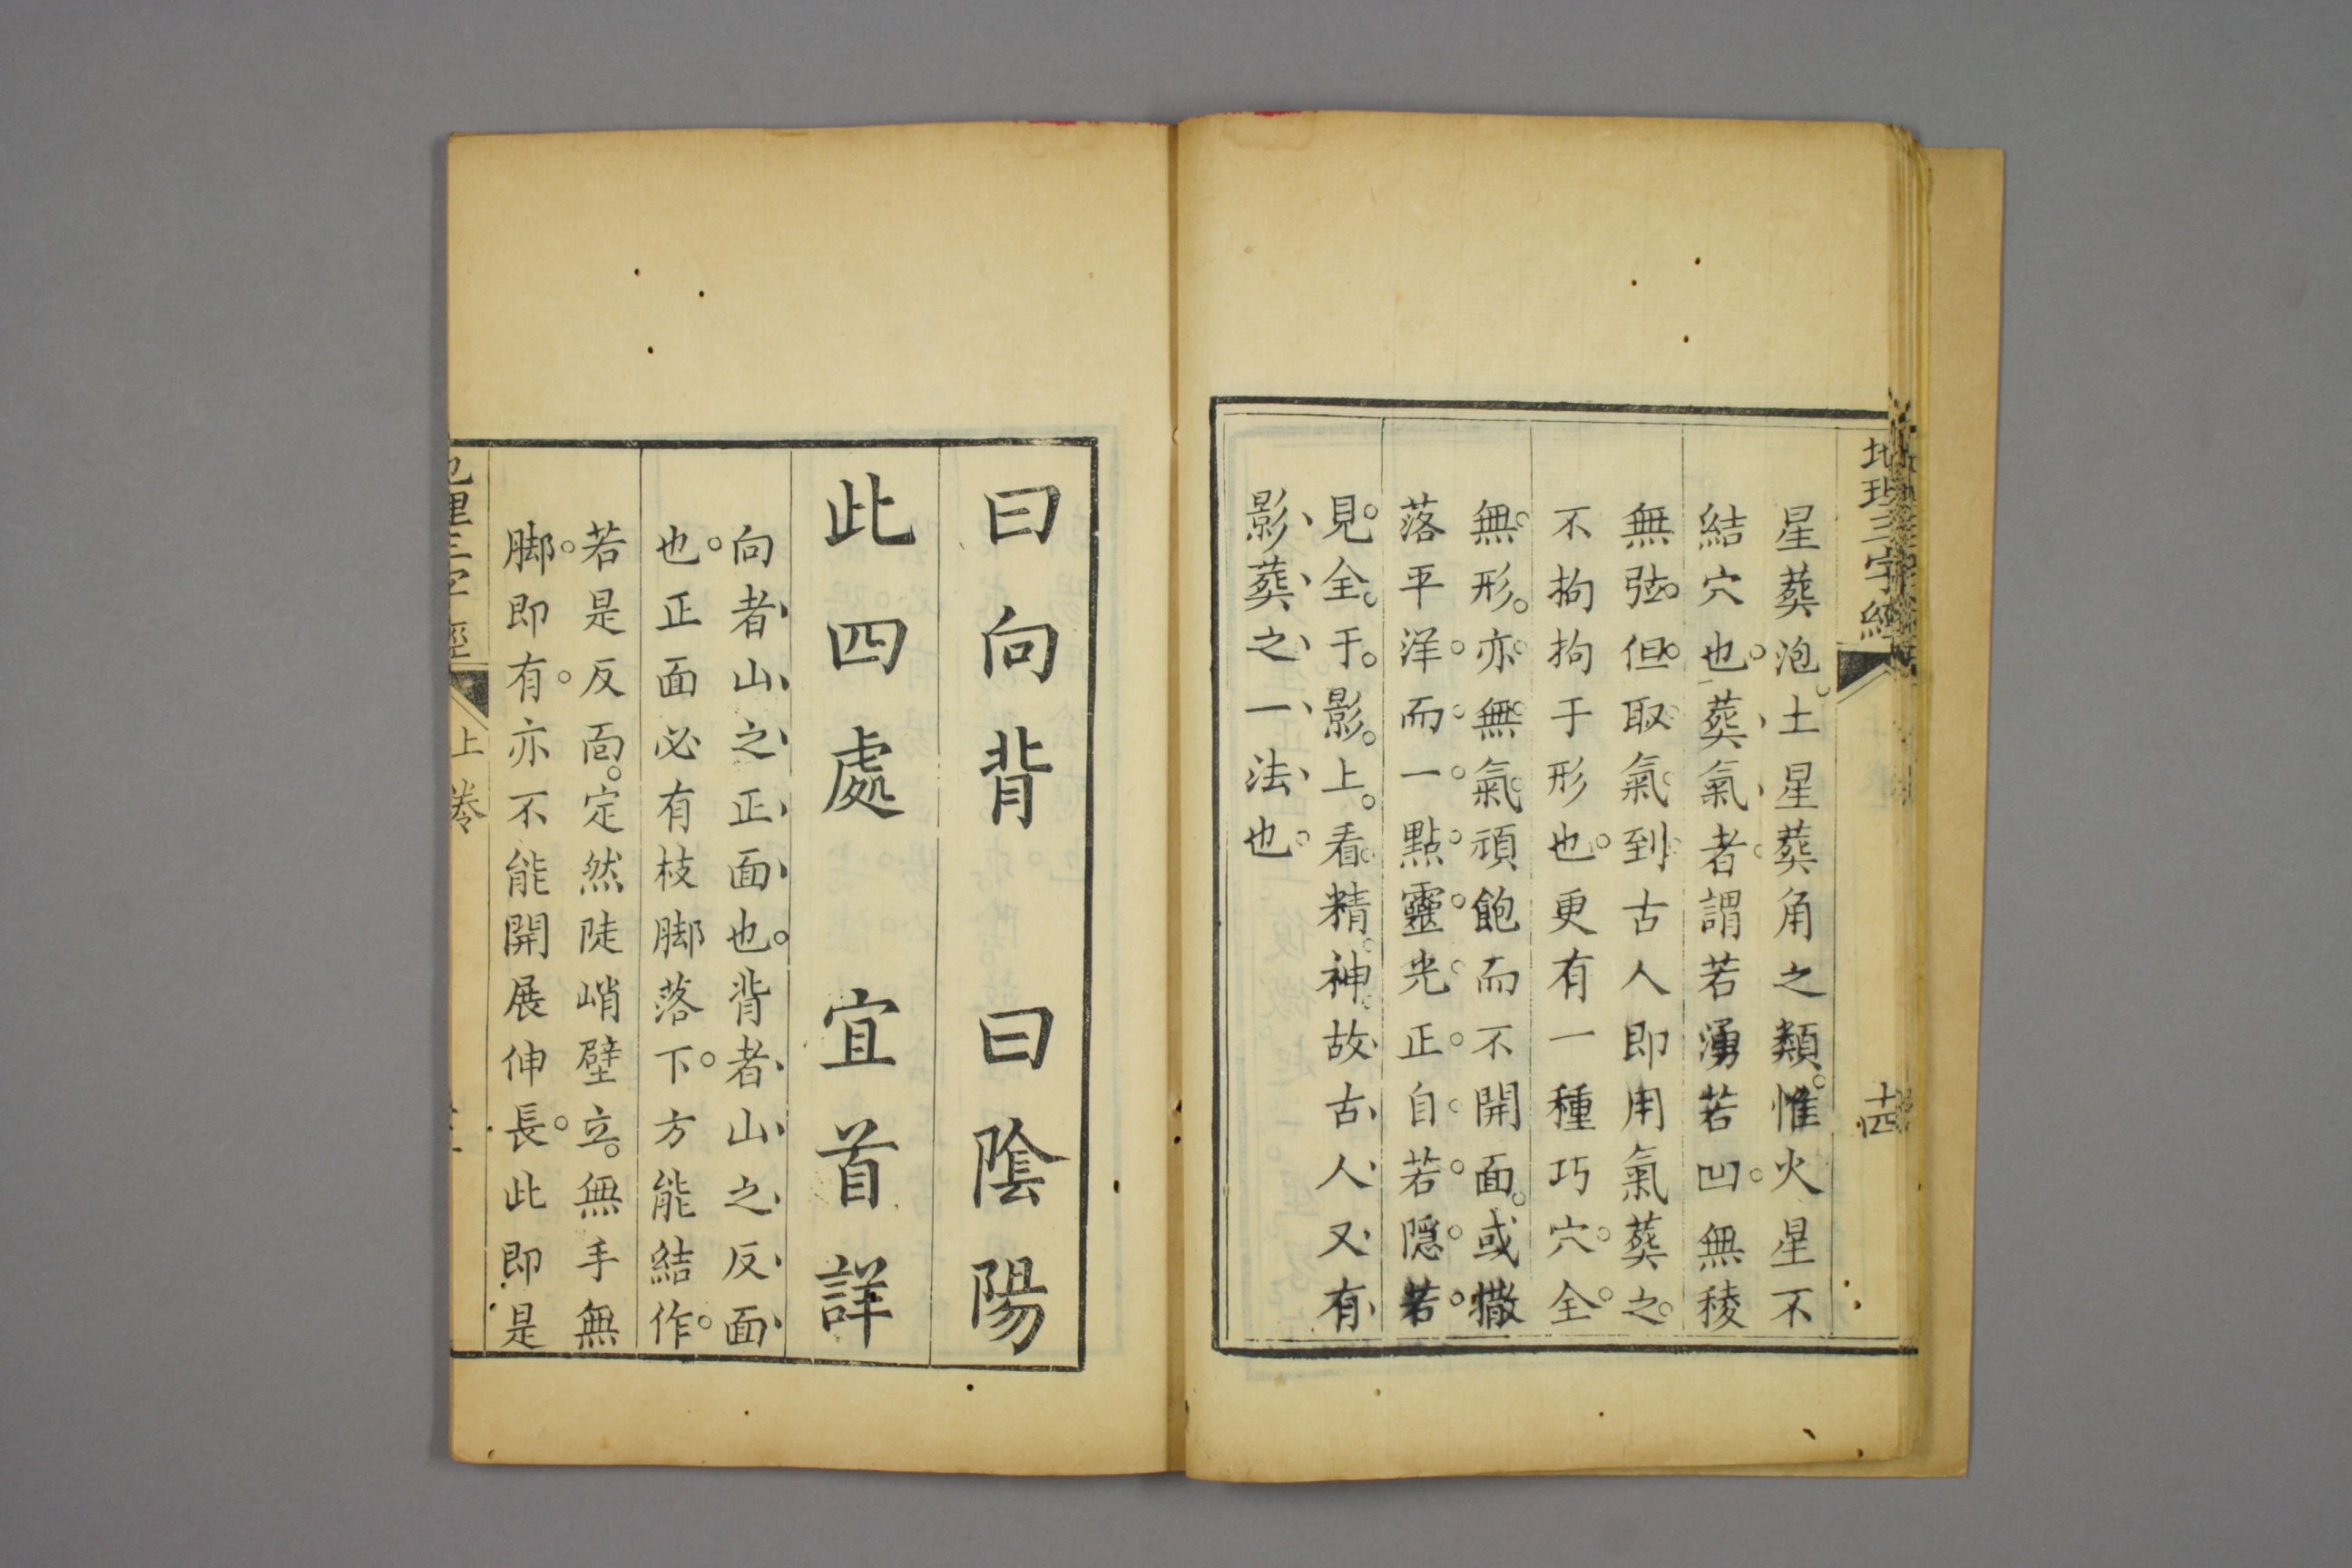 地理三字經
十四
星葬泡土星葬角之類惟火星不
結穴也葬氣者謂若湧若凹無稜
無弦但取氣到古人即用氣葬之
不拘拘于形也更有一種巧穴全
無形亦無氣頑飽而不開面或撒
落平洋而一點靈光正自若隱若
見全于影上看精神故古人又有
影葬之一法也
曰向背曰陰陽
此四處宜首詳
向者山之正面也背者山之反面
也正面必有枝脚落下方能結作
若是反面定然陡峭壁立無手無
脚即有亦不能開展伸長此即是
地理三字經
上卷